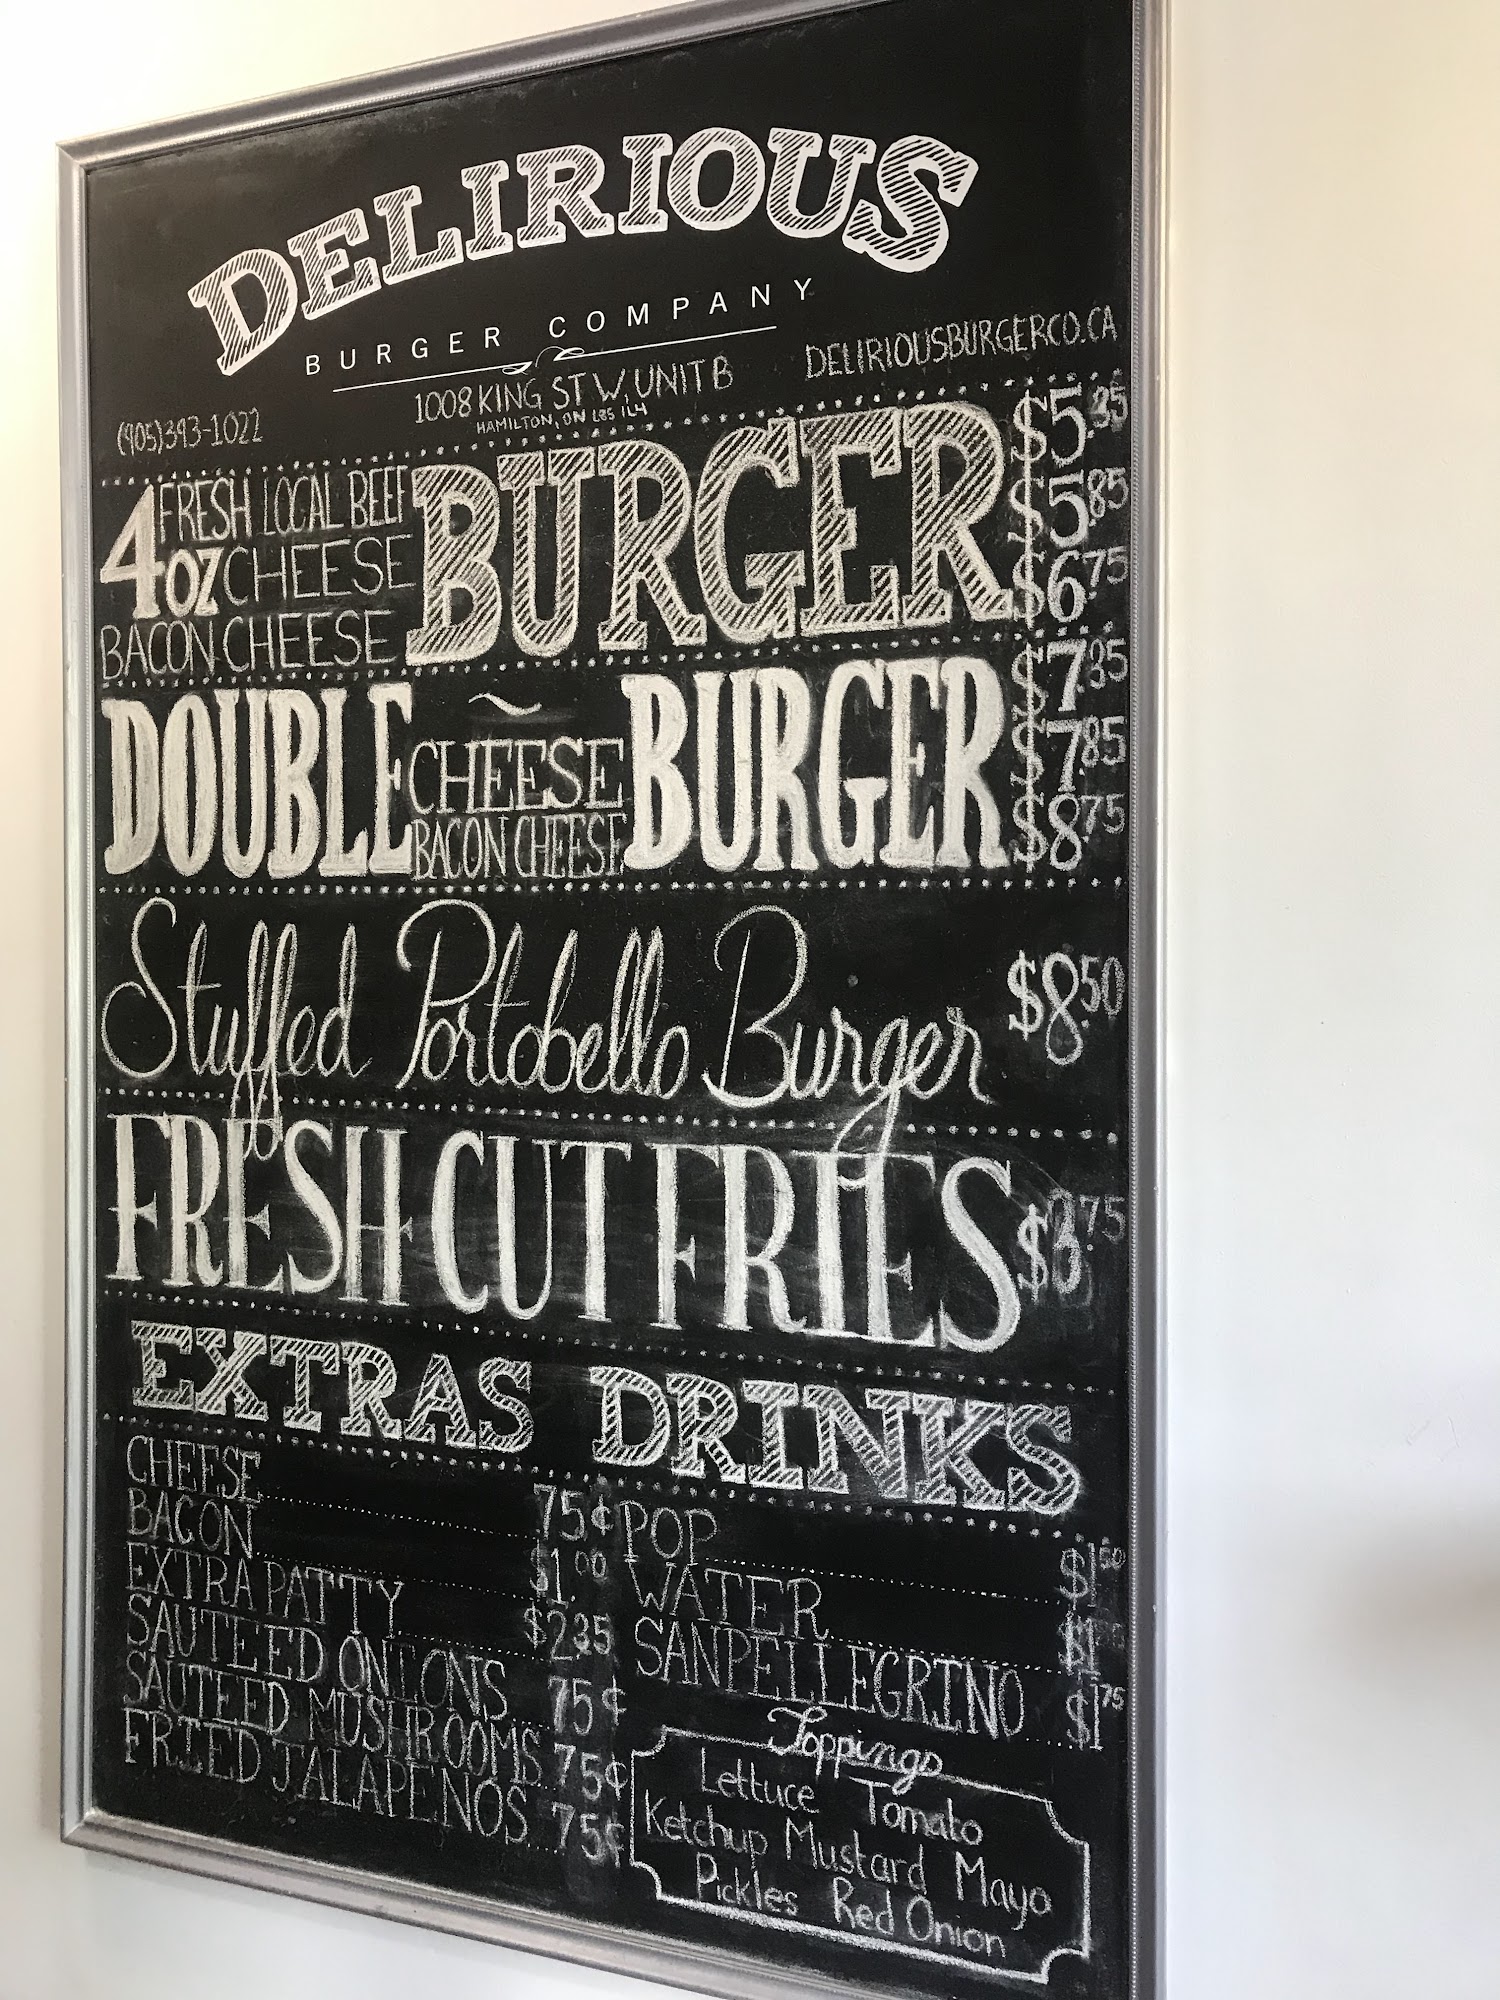 DELIRIOUS
BURGER COMPANY
DELIRIOUSBURGERCO.CA
1008 KING ST W, UNIT B
HAMILTON, ON L8S 1L4
(905)393-1022
4oz FRESH LOCAL BEEF BURGER $5.35
CHEESE $5.85
BACON CHEESE $6.75
DOUBLE ~ BURGER $7.35
CHEESE $7.85
BACON CHEESE $8.75
Stuffed Portobello Burger $8.50
FRESH CUT FRIES $3.75
EXTRAS
CHEESE 75¢
BACON $1.00
EXTRA PATTY $2.35
SAUTEED ONIONS 75¢
SAUTEED MUSHROOMS 75¢
FRIED JALAPENOS 75¢
DRINKS
POP $1.50
WATER $1
SANPELLEGRINO $1.75
Toppings
Lettuce Tomato
Ketchup Mustard Mayo
Pickles Red Onion